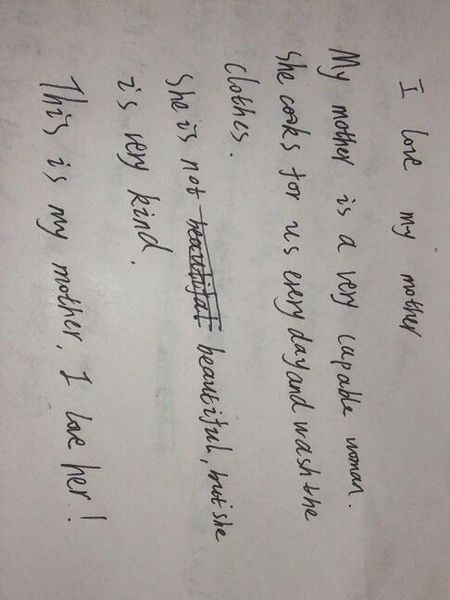 I love my mother
My mother is a very capable woman.
She cooks for us every day and wash the
clothes.
She is not beautiful, but she
is very kind.
This is my mother, I love her!